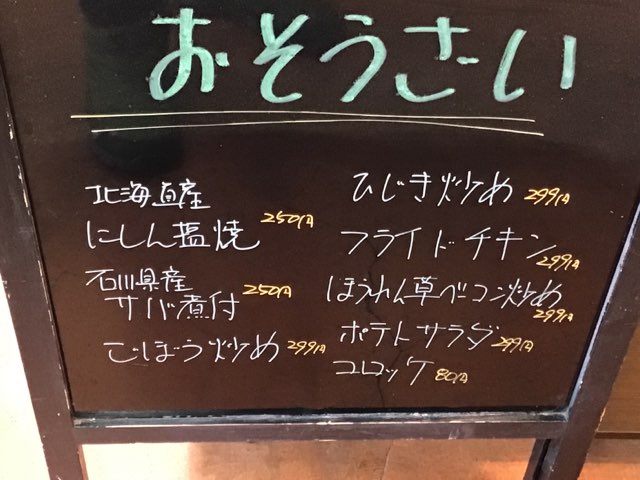 おそうさい
北海道産
にしん塩焼 250円
石川県産
サバ煮付 250円
ごぼう炒め 299円
ひじき炒め 299円
フライドチキン 299円
ほうれん草ベーコン炒め 299円
ポテトサラダ 299円
コロッケ 80円